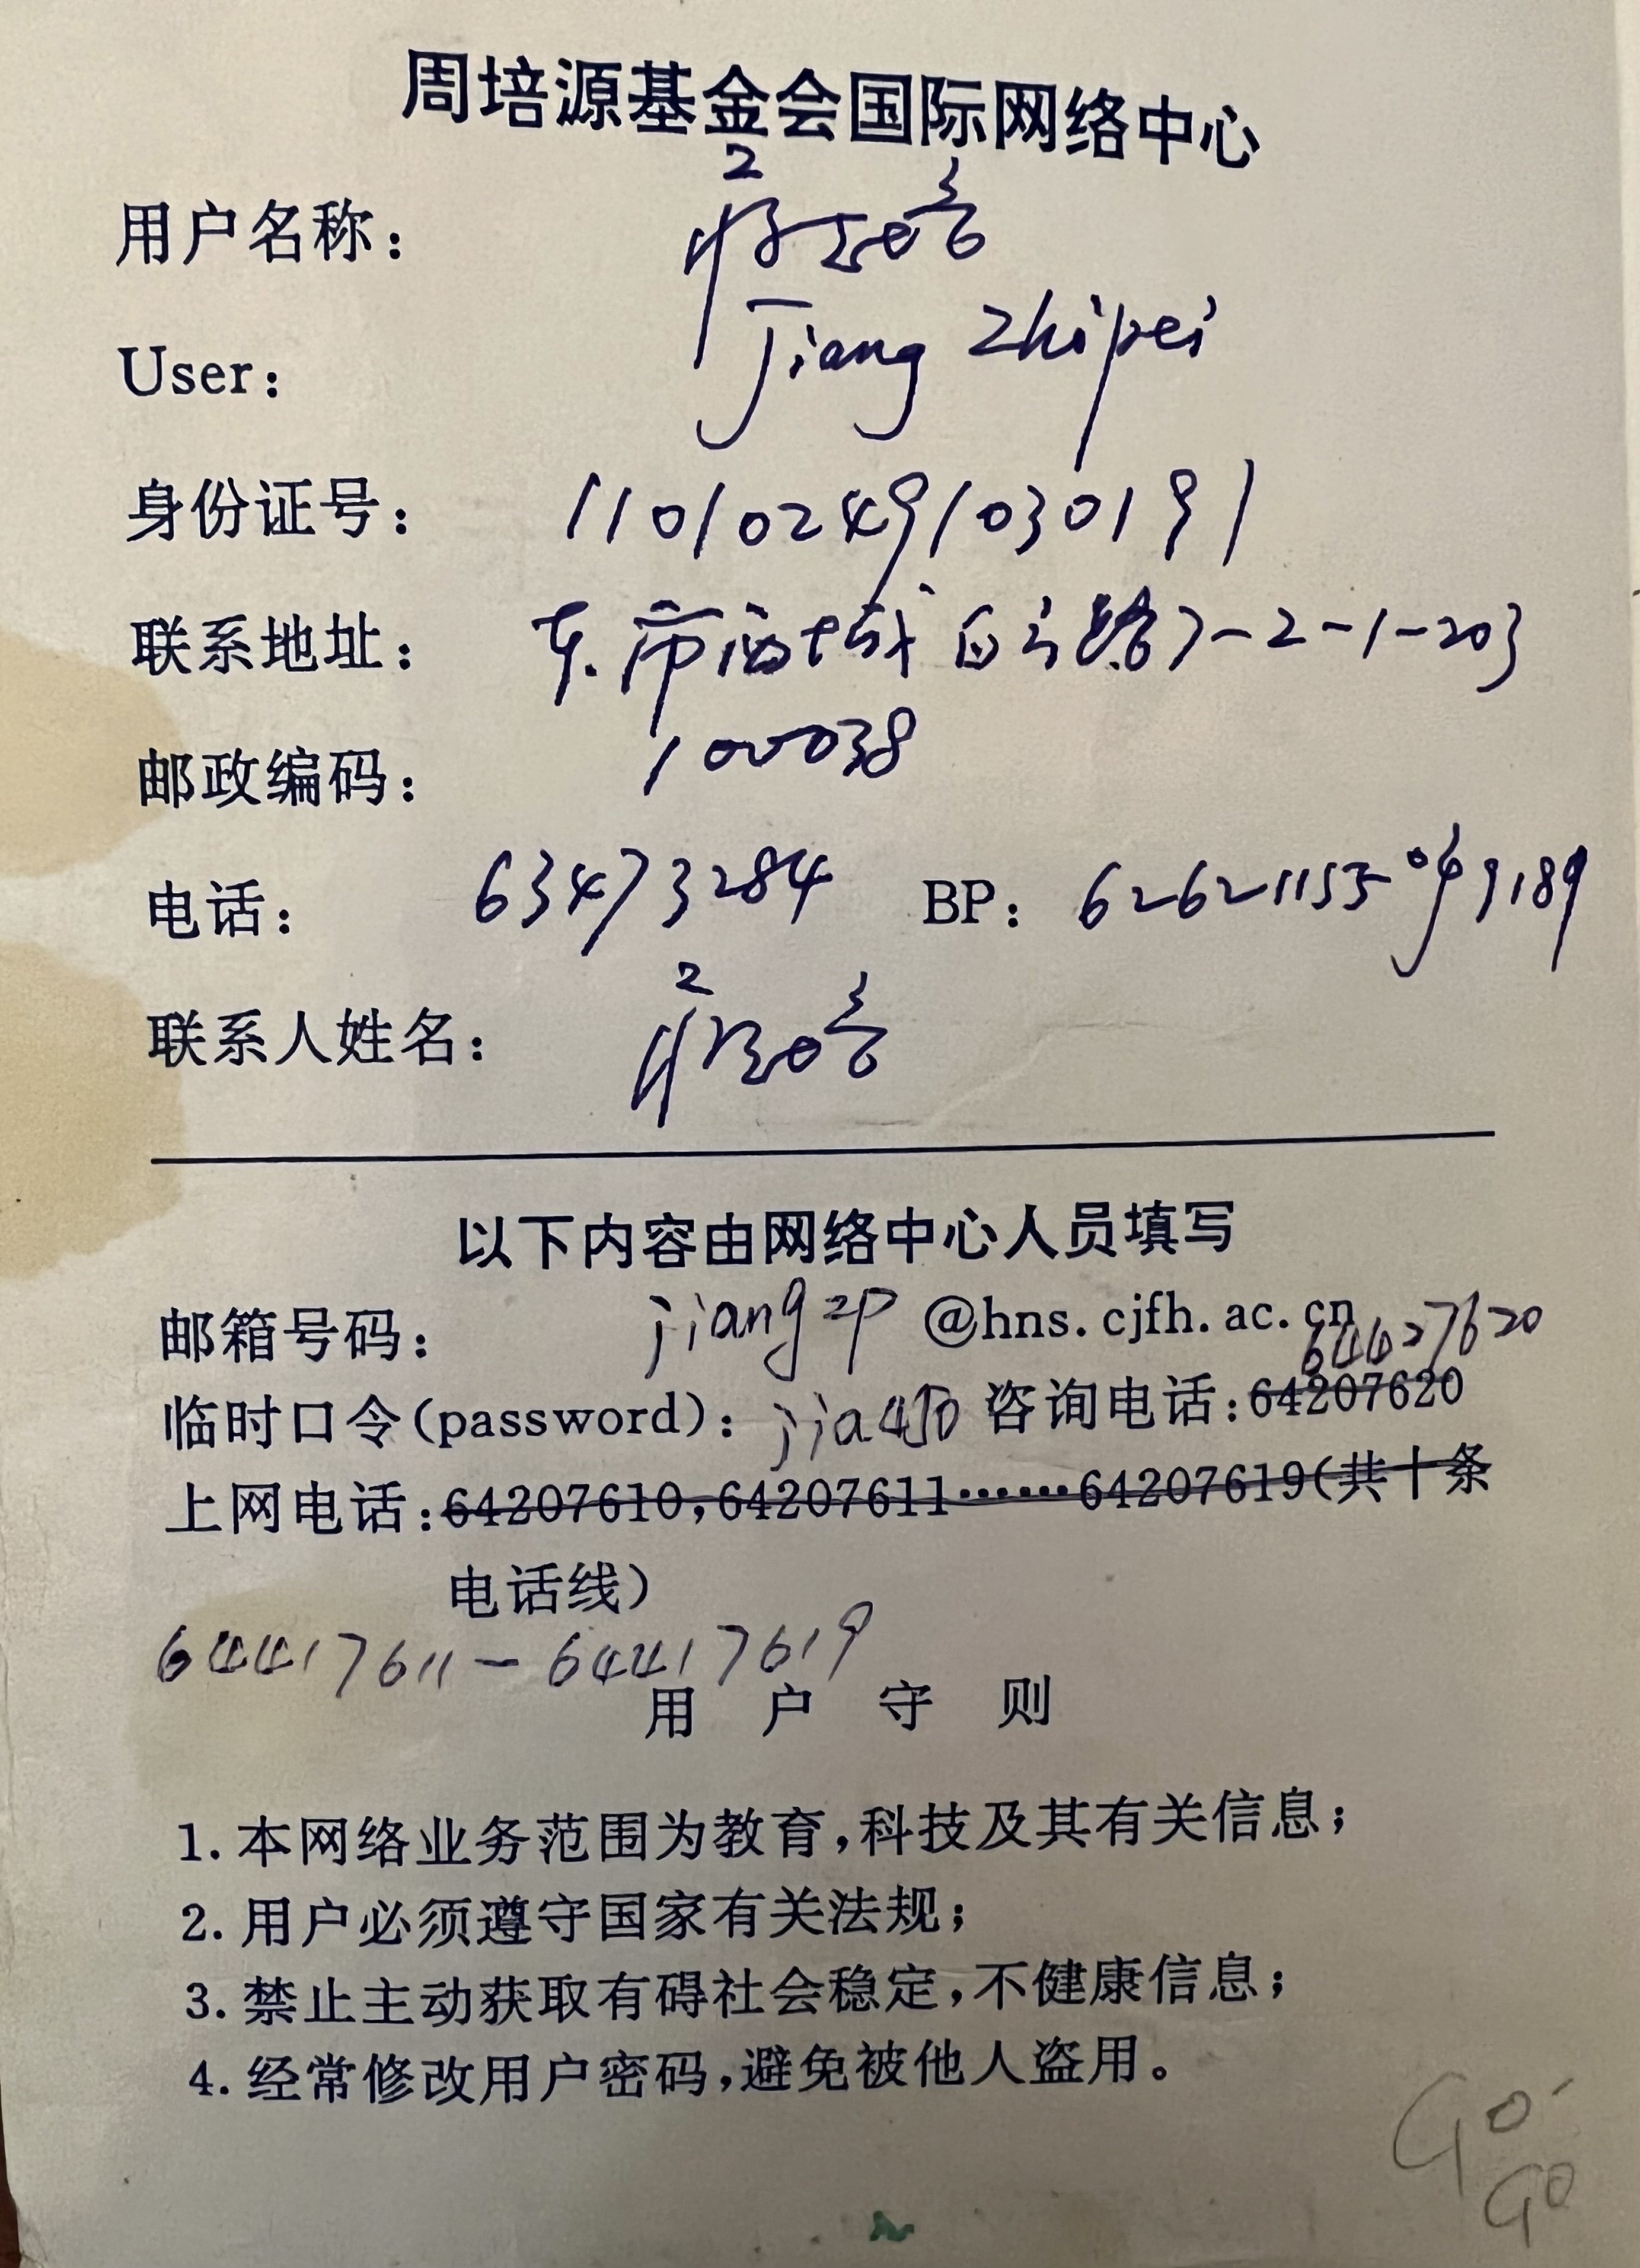 周培源基金会国际网络中心
用户名称： 蒋志培
User： Jiang Zhipei
身份证号： 110102491030191
联系地址： 市西城 白云路7-2-1-203
邮政编码： 100038
电话： 63473284 BP： 62621155 99189
联系人姓名： 蒋志培
以下内容由网络中心人员填写
邮箱号码： jiangzp @hns.cjfh.ac.cn
临时口令(password)： 咨询电话:64207620
上网电话:64207610,64207611……64207619(共十条
电话线)
64417611-64417619
用户守则
1.本网络业务范围为教育,科技及其有关信息;
2.用户必须遵守国家有关法规;
3.禁止主动获取有碍社会稳定,不健康信息;
4.经常修改用户密码,避免被他人盗用。
Go
Go